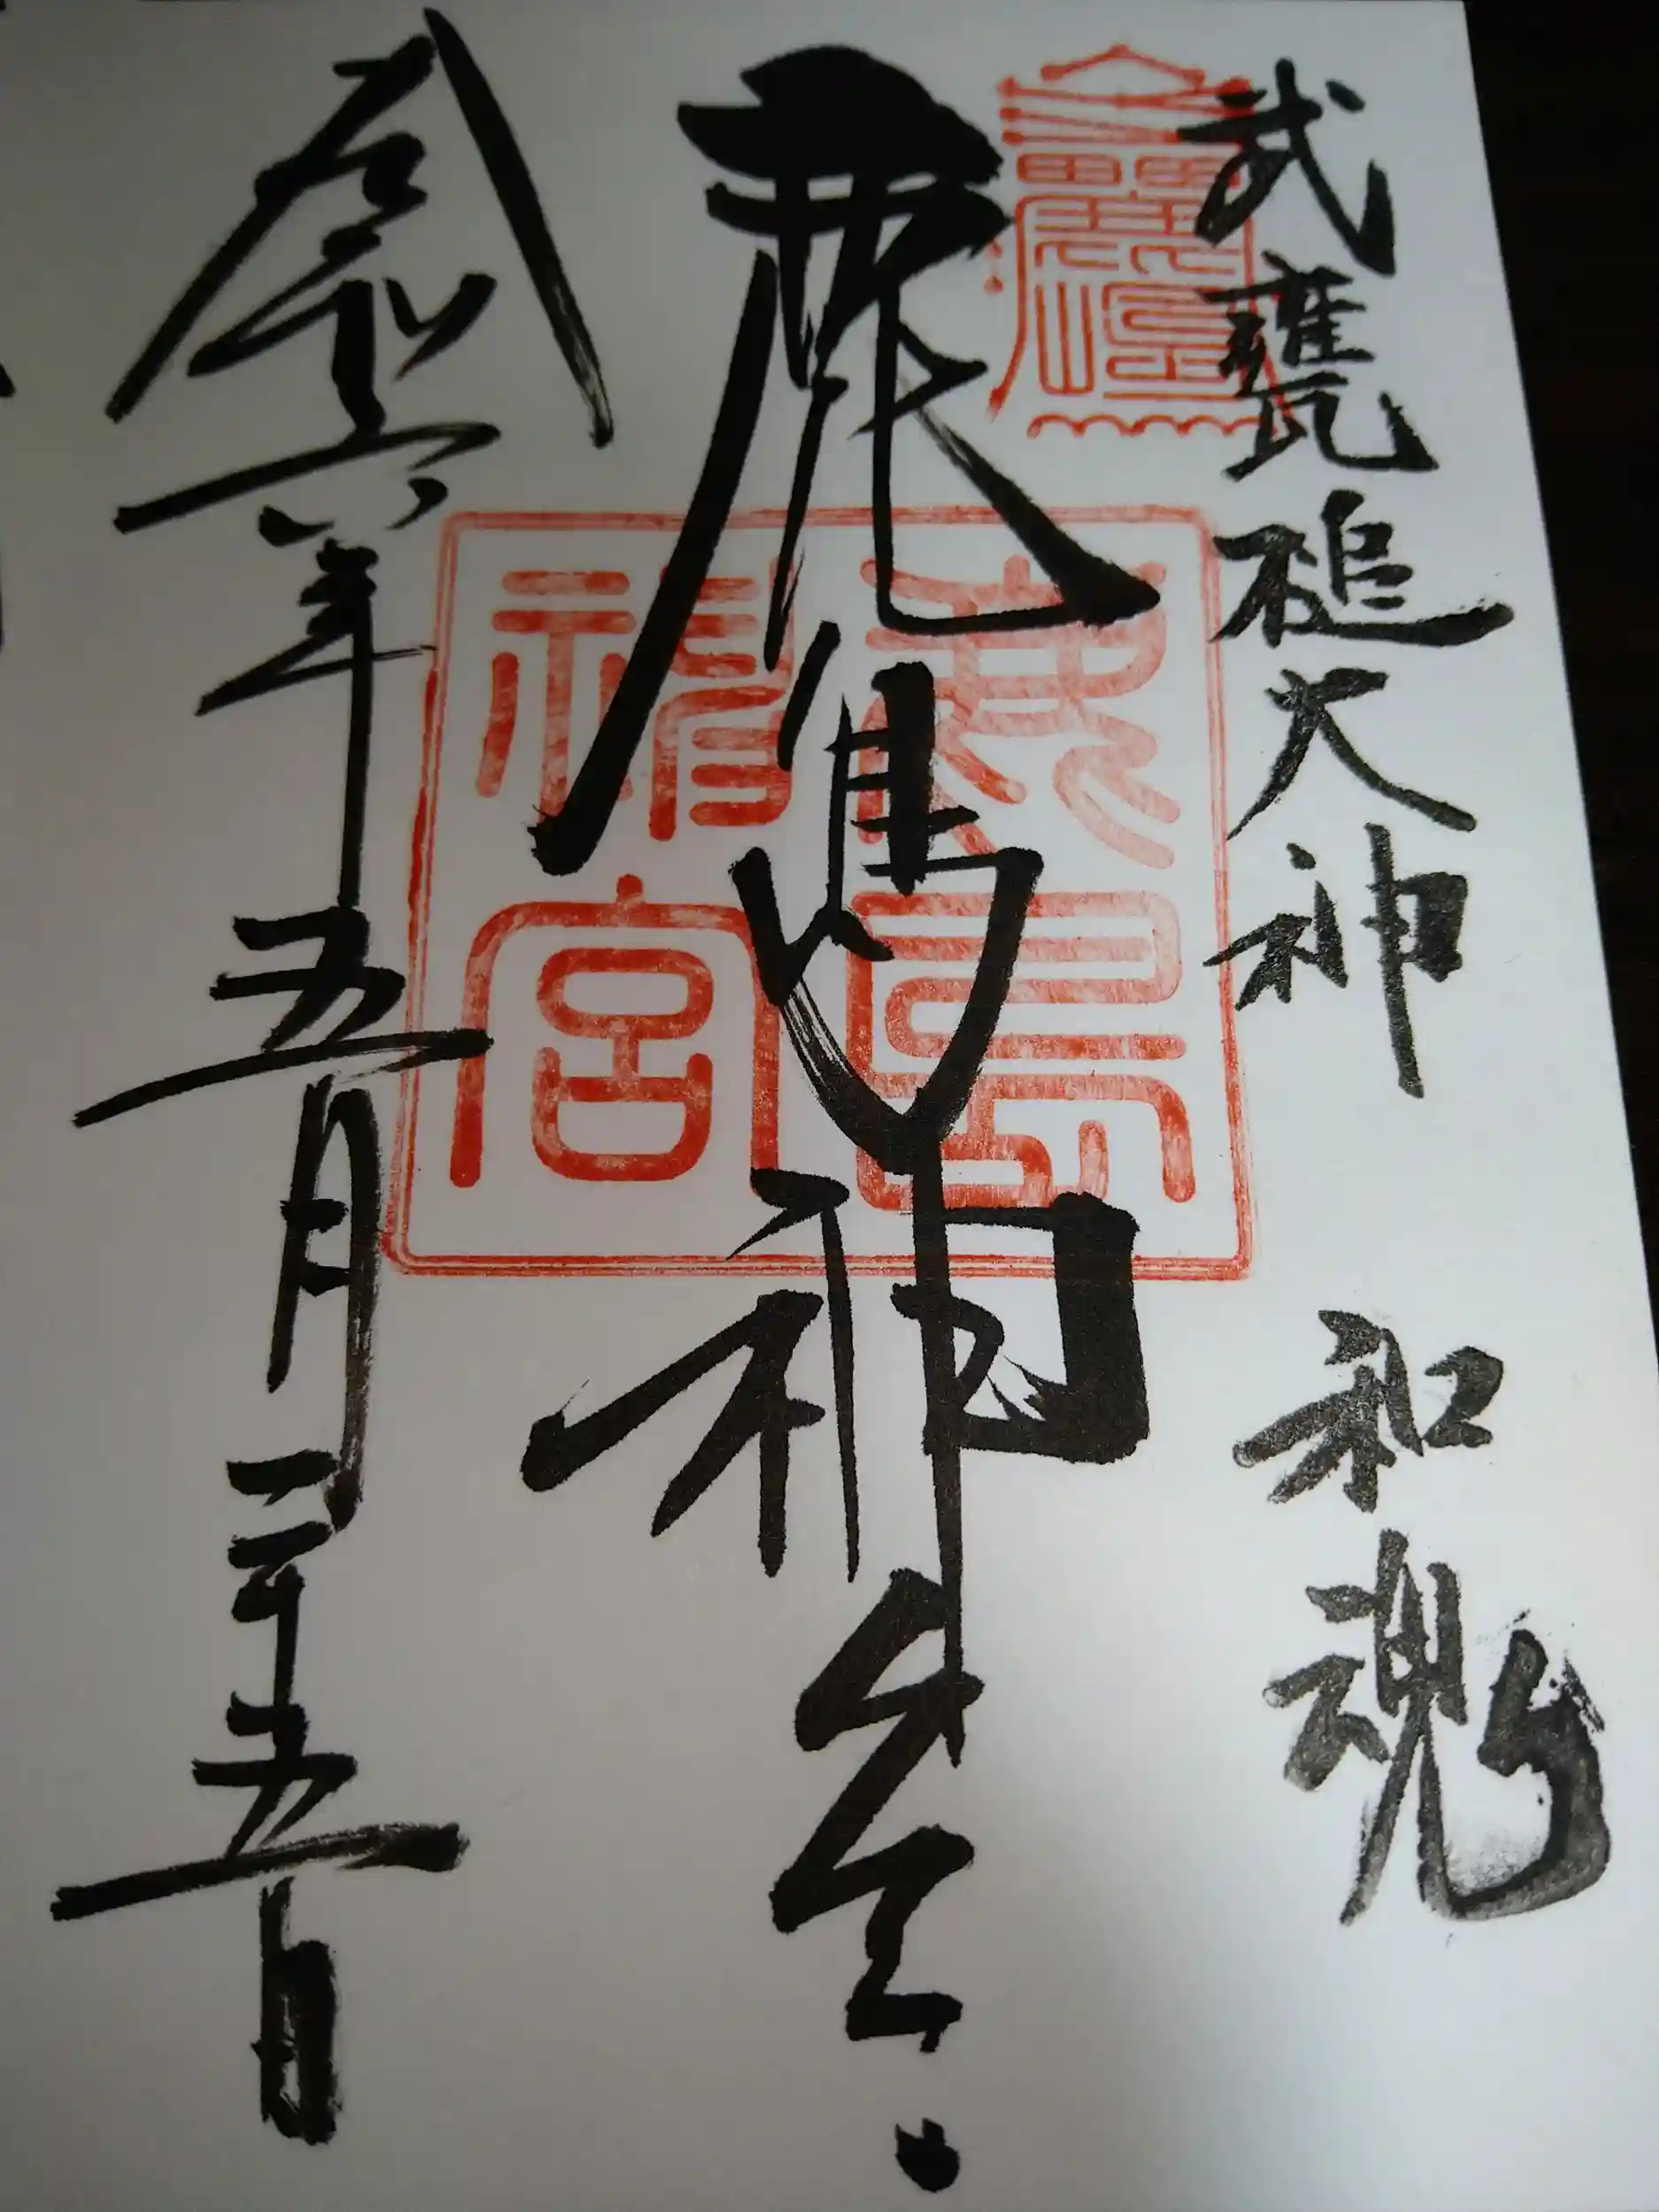 武甕槌大神 和魂
鹿島神宮
令和六年五月二十五日